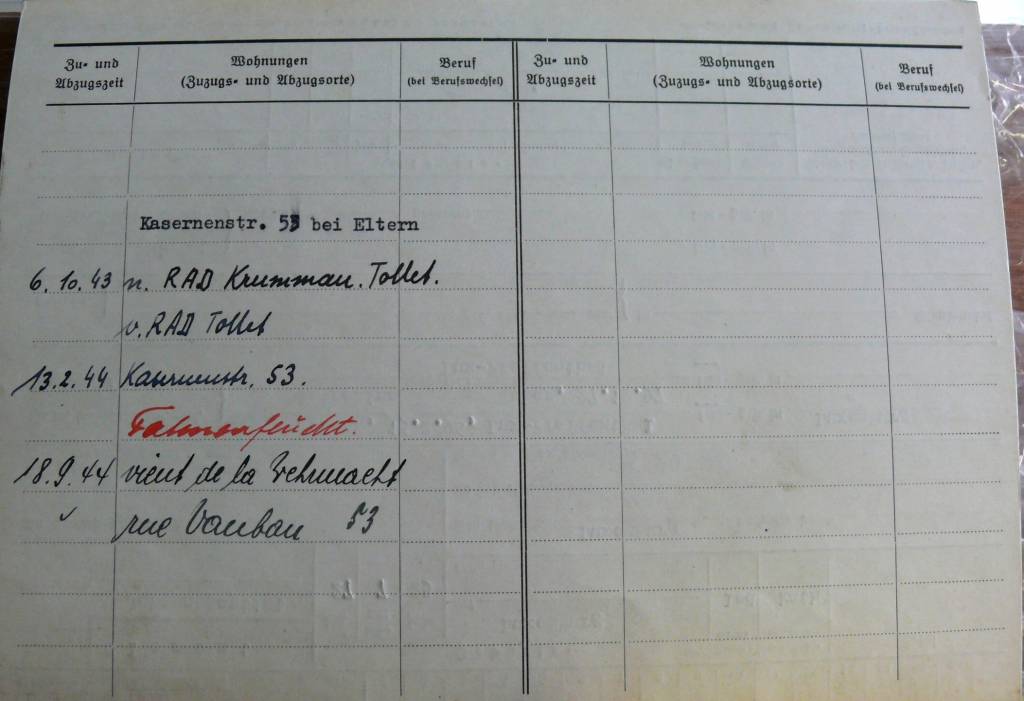 Zu- und Abzugszeit
Wohnungen
(Zuzugs- und Abzugsorte)
Beruf
(bei Berufswechsel)
Zu- und Abzugszeit
Wohnungen
(Zuzugs- und Abzugsorte)
Beruf
(bei Berufswechsel)
Kasernenstr. 53 bei Eltern
6. 10. 43 n. RAD Krummau. Tollet.
v. RAD Tollet
13.2.44 Kasernenstr. 53.
Fahnenflücht.
18.9.44 vient de la Wehrmacht
rue Vauban 53